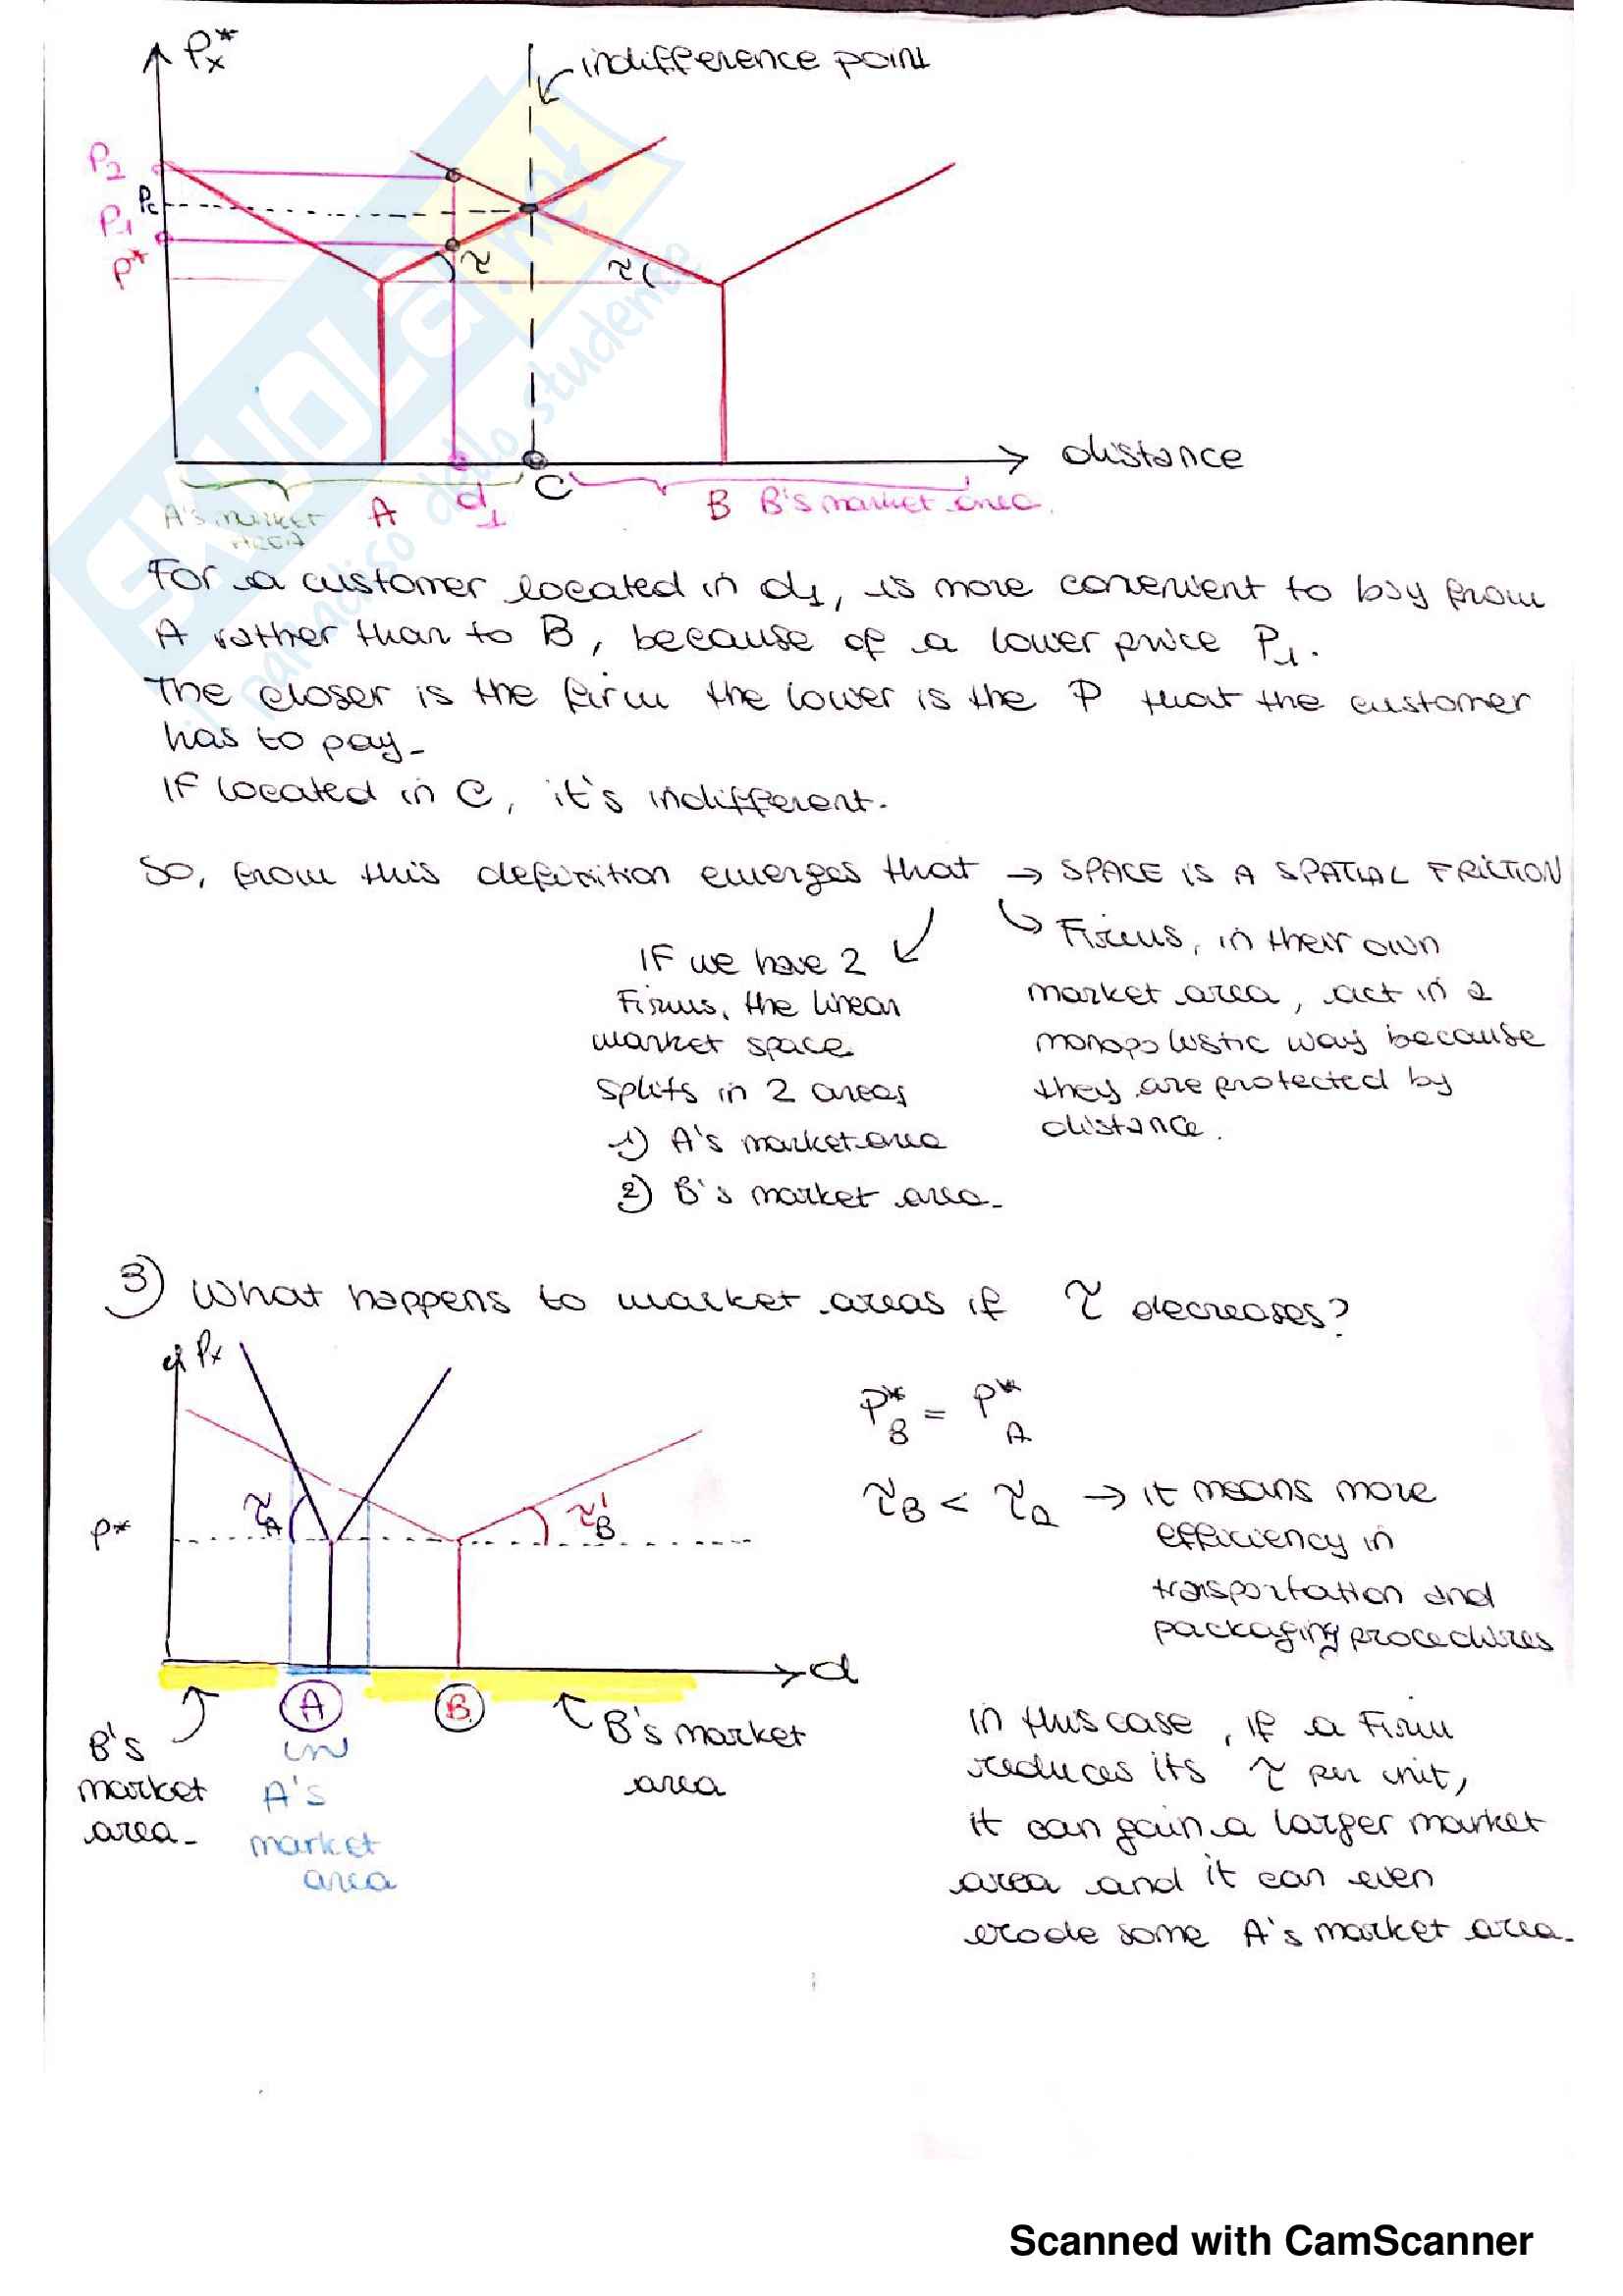 Px*
indifference point
P2
Pc
P1
P*
τ
τ
distance
A's market
AREA
A
d1
C
B
B's market area.
For a customer located in d1, is more convenient to buy from
A rather than to B, because of a lower price P1.
The closer is the firm the lower is the P that the customer
has to pay-
IF located in C, it's indifferent.
So, from this definition emerges that → SPACE IS A SPATIAL FRICTION
IF we have 2
Firms, the linear
market space
splits in 2 areas
1) A's market area
2) B's market area-
Firms, in their own
market area, act in a
monopolistic way because
they are protected by
distance.
3) What happens to market areas if τ decreases?
Px
P*
τA
τ'B
d
A
B
B's
market
area-
A's
market
area
B's market
area
P*B = P*A
τB < τA → it means more
efficiency in
transportation and
packaging procedures
in this case, if a Firm
reduces its τ per unit,
it can gain a larger market
area and it can even
erode some A's market area-
SKUOLA.net
il paradiso dello studente
Scanned with CamScanner